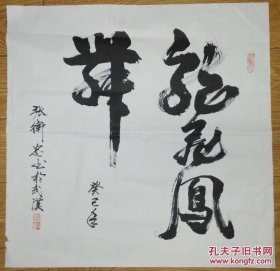 龍飛鳳
舞
癸巳年
張衛忠書於武漢
孔夫子旧书网